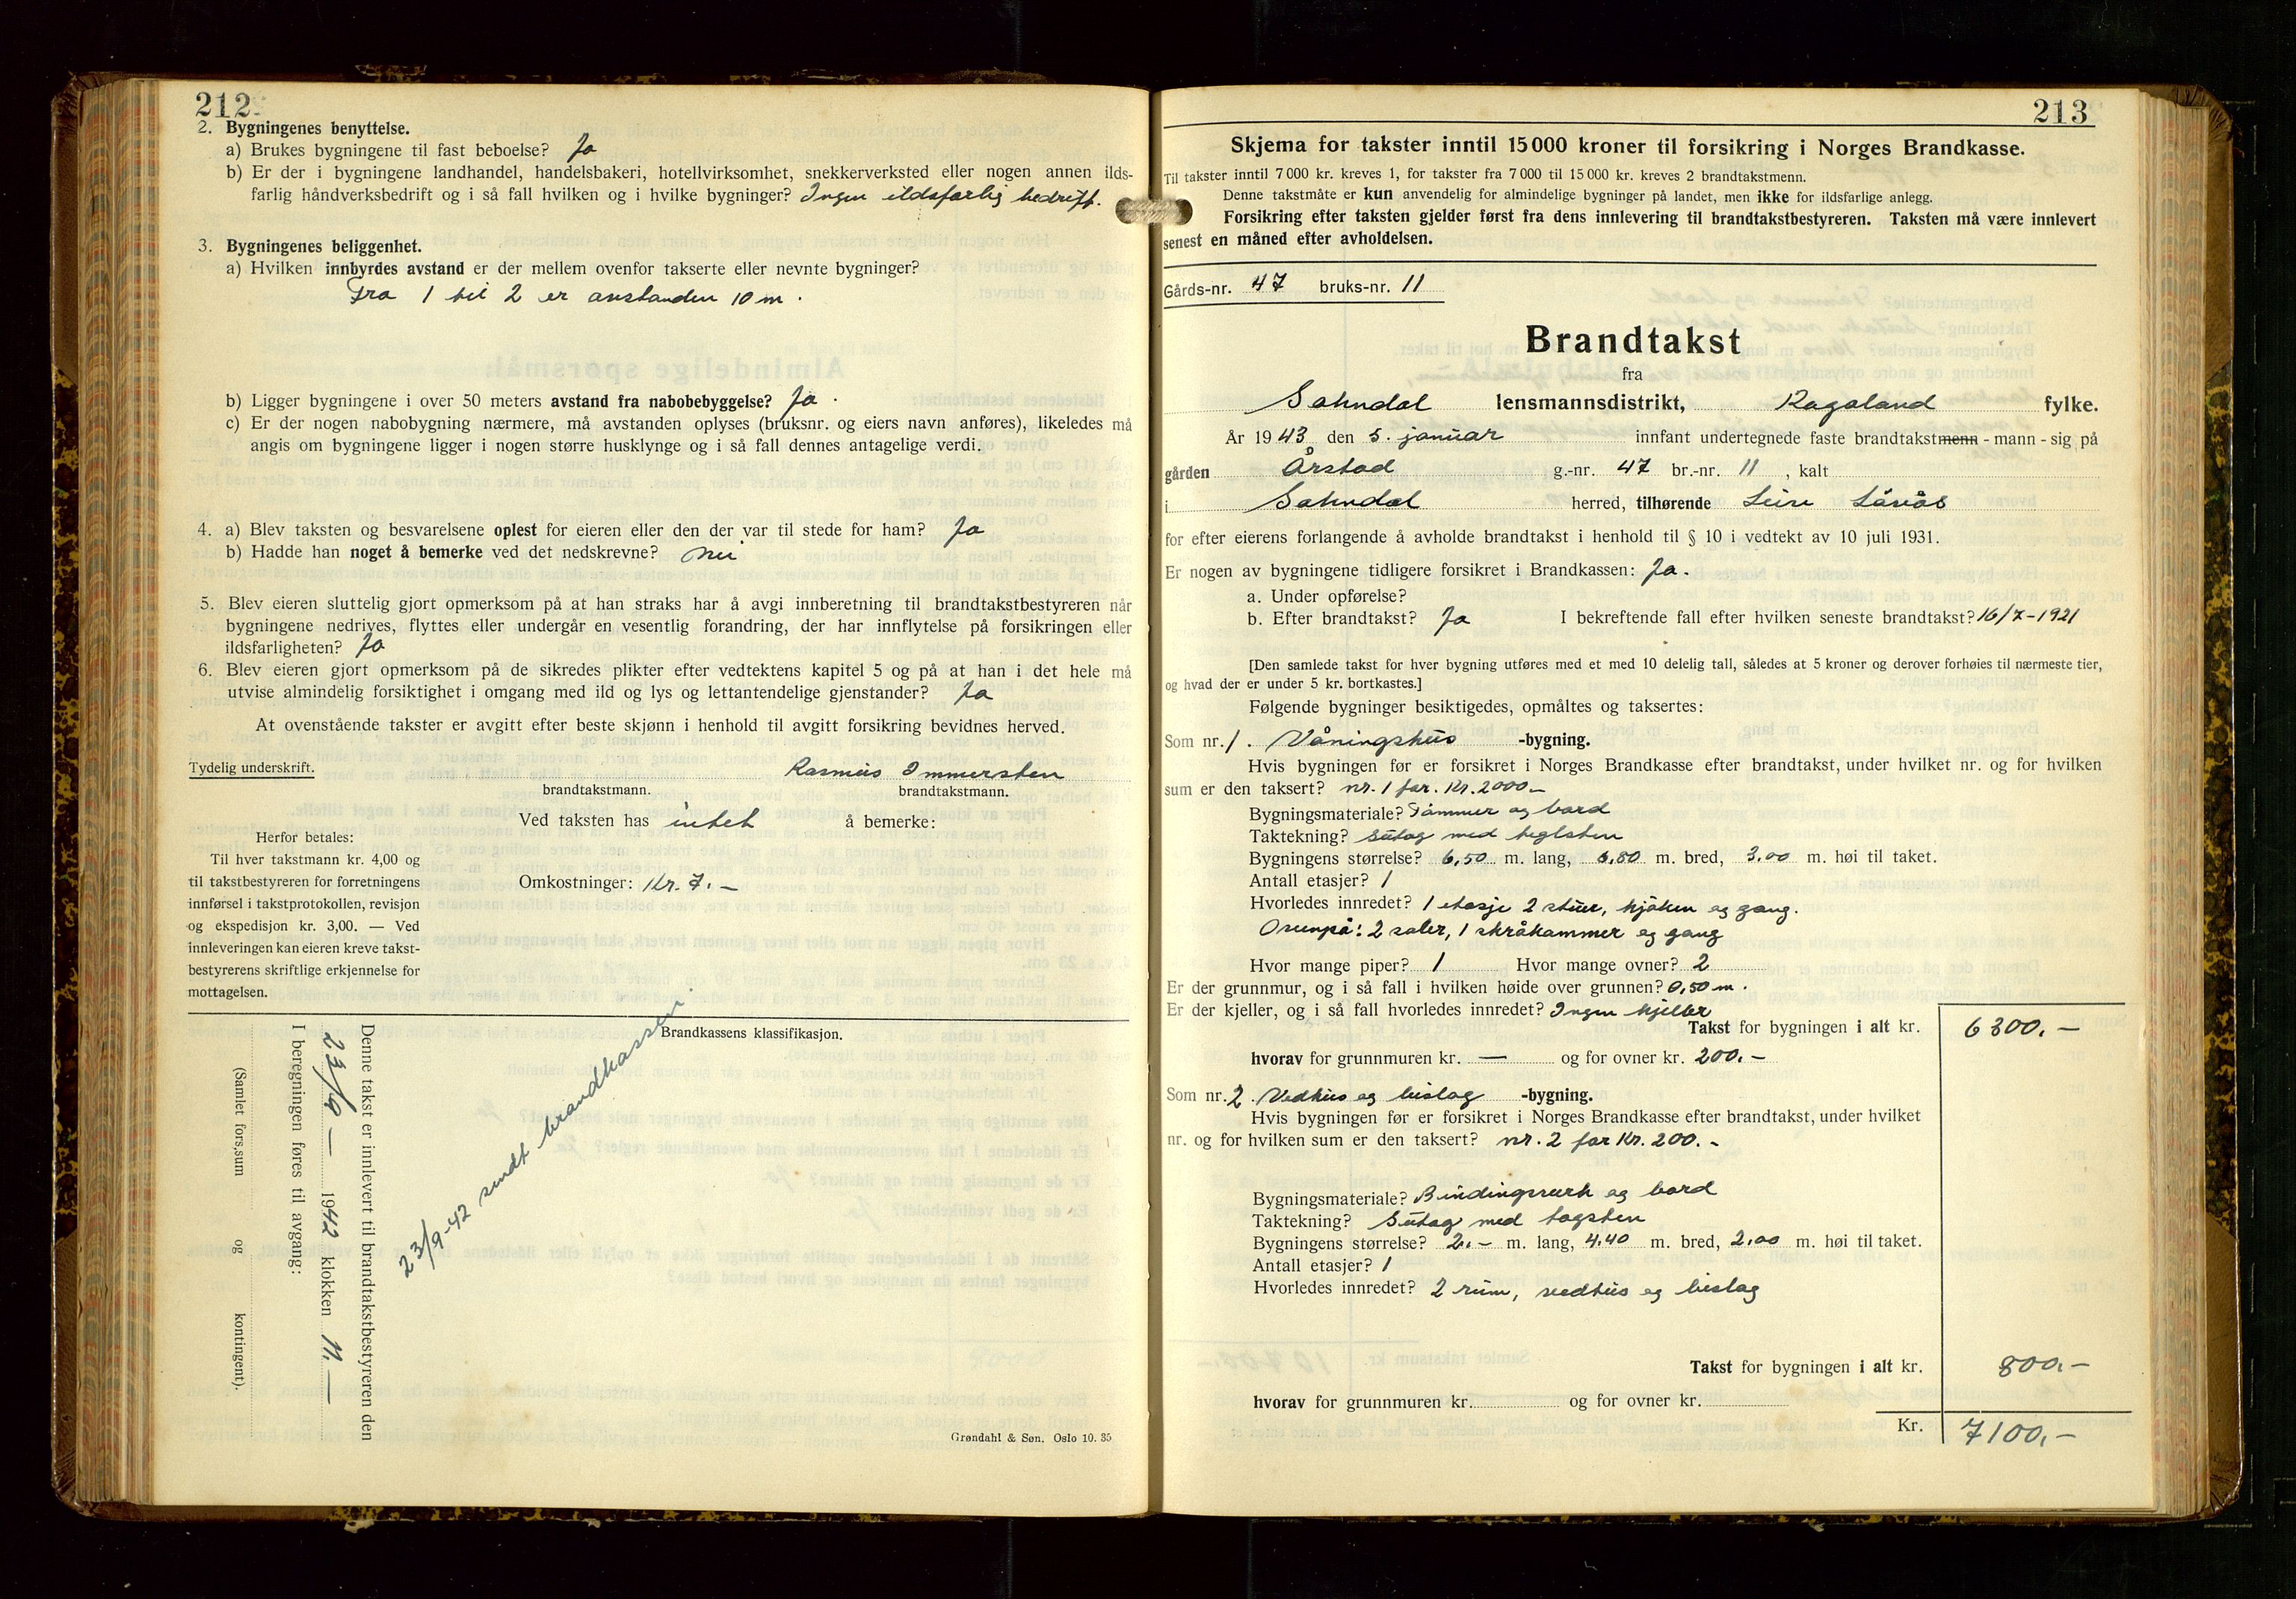 212
2. Bygningenes benyttelse.
a) Brukes bygningene til fast beboelse? Ja
b) Er der i bygningene landhandel, handelsbakeri, hotellvirksomhet, snekkerverksted eller nogen annen ilds-
farlig håndverksbedrift og i så fall hvilken og i hvilke bygninger? Ingen ildsfarlig bedrift.
3. Bygningenes beliggenhet.
a) Hvilken innbyrdes avstand er der mellem ovenfor takserte eller nevnte bygninger?
Fra 1 til 2 er avstanden 10 m.
b) Ligger bygningene i over 50 meters avstand fra nabobebyggelse? Ja.
c) Er der nogen nabobygning nærmere, må avstanden oplyses (bruksnr. og eiers navn anføres), likeledes må
angis om bygningene ligger i nogen større husklynge og i så fall dennes antagelige verdi.
4. a) Blev taksten og besvarelsene oplest for eieren eller den der var til stede for ham? Ja
b) Hadde han noget å bemerke ved det nedskrevne? Nei
5. Blev eieren sluttelig gjort opmerksom på at han straks har å avgi innberetning til brandtakstbestyreren når
bygningene nedrives, flyttes eller undergår en vesentlig forandring, der har innflytelse på forsikringen eller
ildsfarligheten? Ja
6. Blev eieren gjort opmerksom på de sikredes plikter efter vedtektens kapitel 5 og på at han i det hele må
utvise almindelig forsiktighet i omgang med ild og lys og lettantendelige gjenstander? Ja
At ovenstående takster er avgitt efter beste skjønn i henhold til avgitt forsikring bevidnes herved.
Tydelig underskrift. Rasmus Immersten
brandtakstmann. brandtakstmann.
Ved taksten has intet å bemerke:
Herfor betales:
Til hver takstmann kr. 4,00 og
til takstbestyreren for forretningens
innførsel i takstprotokollen, revisjon
og ekspedisjon kr. 3,00. — Ved
innleveringen kan eieren kreve takst-
bestyrerens skriftlige erkjennelse for
mottagelsen.
Omkostninger: Kr. 7.-
Brandkassens klassifikasjon.
23/9-42 sendt brandkassen.
Denne takst er innlevert til brandtakstbestyreren den
23/9 — 1942 klokken 11.—
I beregningen føres til avgang:
(Samlet fors.sum og kontingent).
Grøndahl & Søn, Oslo 10. 35
213
Skjema for takster inntil 15 000 kroner til forsikring i Norges Brandkasse.
Til takster inntil 7 000 kr. kreves 1, for takster fra 7 000 til 15 000 kr. kreves 2 brandtakstmenn.
Denne takstmåte er kun anvendelig for almindelige bygninger på landet, men ikke for ildsfarlige anlegg.
Forsikring efter taksten gjelder først fra dens innlevering til brandtakstbestyreren. Taksten må være innlevert
senest en måned efter avholdelsen.
Gårds-nr. 47 bruks-nr. 11
Brandtakst
fra
Sokndal lensmannsdistrikt, Rogaland fylke.
År 1943 den 5. januar innfant undertegnede faste brandtakstmenn - mann - sig på
gården Årstad g.-nr. 47 br.-nr. 11, kalt
i Sokndal herred, tilhørende
for efter eierens forlangende å avholde brandtakst i henhold til § 10 i vedtekt av 10 juli 1931.
Er nogen av bygningene tidligere forsikret i Brandkassen: Ja.
a. Under opførelse?
b. Efter brandtakst? Ja I bekreftende fall efter hvilken seneste brandtakst? 16/7-1921
[Den samlede takst for hver bygning utføres med et med 10 delelig tall, således at 5 kroner og derover forhøies til nærmeste tier,
og hvad der er under 5 kr. bortkastes.]
Følgende bygninger besiktigedes, opmåltes og taksertes:
Som nr. 1. Våningshus -bygning.
Hvis bygningen før er forsikret i Norges Brandkasse efter brandtakst, under hvilket nr. og for hvilken
sum er den taksert? nr. 1 for. Kr. 2000.-
Bygningsmateriale? Tømmer og bord
Taktekning? Sutag med teglsten
Bygningens størrelse? 6,50 m. lang, 6,80 m. bred, 3.00 m. høi til taket.
Antall etasjer? 1
Hvorledes innredet? 1 etasje 2 stuer, kjøken og gang.
Ovenpå: 2 saler, 1 skråkammer og gang
Hvor mange piper? 1 Hvor mange ovner? 2
Er der grunnmur, og i så fall i hvilken høide over grunnen? 0,50 m.
Er der kjeller, og i så fall hvorledes innredet? Ingen kjeller
Takst for bygningen i alt kr. 6300.-
hvorav for grunnmuren kr. — og for ovner kr. 200.-
Som nr. 2. Vedhus og bislag -bygning.
Hvis bygningen før er forsikret i Norges Brandkasse efter brandtakst, under hvilket
nr. og for hvilken sum er den taksert? nr. 2 for Kr. 200.-
Bygningsmateriale? Bindingsverk og bord
Taktekning? Sutag med tagsten
Bygningens størrelse? 2.- m. lang, 4.40 m. bred, 2,00 m. høi til taket.
Antall etasjer? 1
Hvorledes innredet? 2 rum, vedhus og bislag
Takst for bygningen i alt kr. 800.-
hvorav for grunnmuren kr. og for ovner kr.
Kr. 7100.-